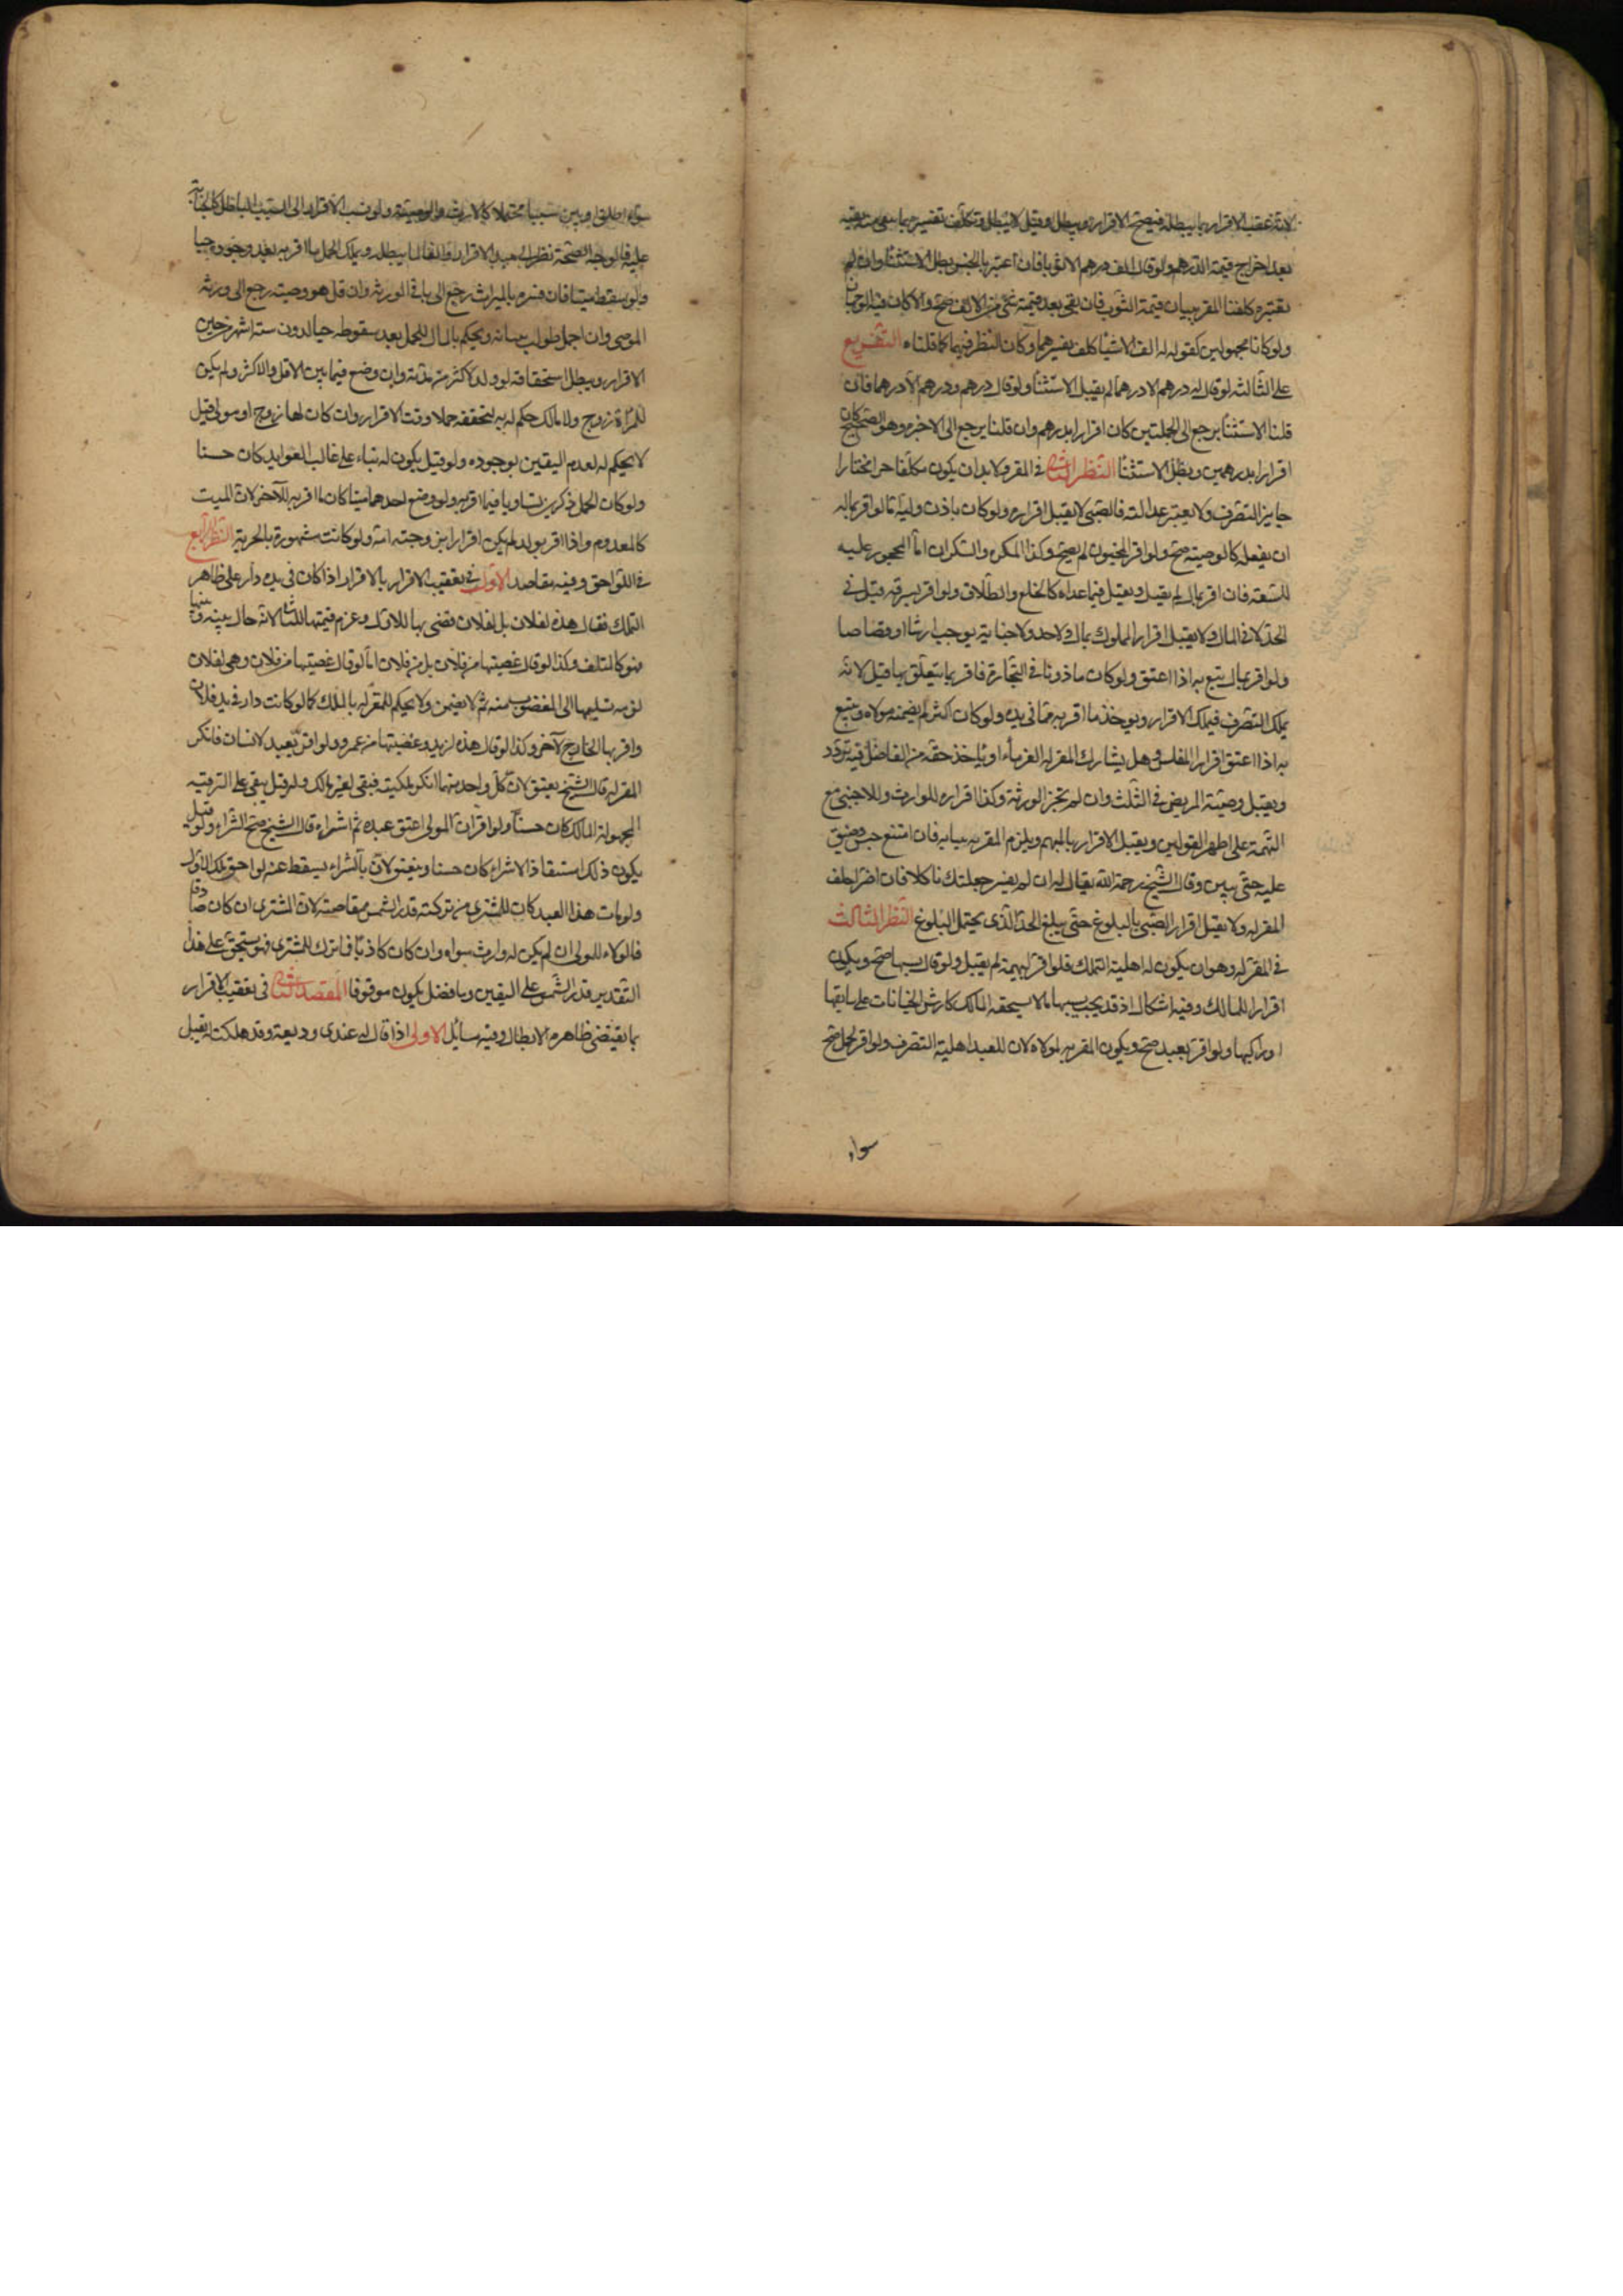 لانه عقب الاقرار بما يبطله فيصح الاقرار ويبطل وقيل لا يبطل ويكلف تفسيره بما يبقى منه بقية
بعد اخراج قيمة الدرهم ولو قال الف درهم الا ثوبا فان اعتبرنا الجنس بطل الاستثناء وان لم
نعتبره كلفنا المقر ببيان قيمة الثوب فان بقى بعد قيمته شئ من الالف صح والا كان فيه الوجهان
ولو كانا مجهولين كقوله له الف الا شيئا كلف تفسيرهما وكان النظر فيهما كما قلناه التفريع
على الثالثة لو قال له درهم الا درهما لم يقبل الاستثناء ولو قال درهم ودرهم الا درهما فان
قلنا الاستثناء يرجع الى الجملتين كان اقرارا بدرهم وان قلنا يرجع الى الاخير وهو الصحيح كان
اقرارا بدرهمين وبطل الاستثناء النظر الثاني في المقر ولا بد ان يكون مكلفا حرا مختارا
جايز التصرف ولا يعتبر عدالته فالصبي لا يقبل اقراره ولو كان باذن وليه اما لو اقر بما له
ان يفعله كالوصية صح ولو اقر المجنون لم يصح وكذا المكره والسكران اما المحجور عليه
للسفه فان اقر بمال لم يقبل ويقبل فيما عداه كالخلع والطلاق ولو اقر بسرقة قبل في
الحد لا في المال ولا يقبل اقرار المملوك بمال ولا حد ولا جناية توجب ارشا او قصاصا
ولو اقر بمال يتبع به اذا اعتق ولو كان ماذونا في التجارة فاقر بما يتعلق بها قبل لانه
يملك التصرف فيملك الاقرار ويوخذ ما اقر به مما في يده ولو كان اكثر لم يضمنه مولاه ويتبع
به اذا اعتق اقرار المفلس وهل يشارك المقر له الغرماء او ياخذ حقه من الفاضل فيه تردد
ويقبل وصية المريض في الثلث وان لم تجز الورثة وكذا اقراره للوارث وللاجنبي مع
التهمة على اظهر القولين ويقبل الاقرار بالمبهم ويلزم المقر به بيانه فان امتنع حبس وضيق
عليه حتى يبين وقال الشيخ رحمة الله يقال له ان لم يفسر جعلتك ناكلا فان اصر احلف
المقر له ولا يقبل اقرار الصبي بالبلوغ حتى يبلغ الحد الذى يحتمل البلوغ النظر الثالث
في المقر له وهو ان يكون له اهلية التملك فلو اقر لبهيمة لم يقبل ولو قال بسببها صح ويكون
اقرارا للمالك وفيه اشكال اذ قد يجب بسببها ما لا يستحقه المالك كارش الجنايات على سايقها
او راكبها ولو اقر لعبد صح ويكون المقر به لمولاه لان للعبد اهلية التصرف ولو اقر لحمل صح
سواء
سواء اطلق او بين سببا محتملا كالارث والوصية ولو نسب الاقرار الى السبب الباطل كالجناية
عليه فالوجه الصحة نظرا الى مبدء الاقرار والغاء لما يبطله ويملك الحمل ما اقر به بعد وجوده حيا
ولو سقط ميتا فان فسره بالميراث رجع الى باقي الورثة وان قال هو وصية رجع الى ورثة
الموصى وان اجمل طولب ببيانه ويحكم بالمال للحمل بعد سقوطه حيا لدون ستة اشهر من حين
الاقرار ويبطل استحقاقه لو ولد لاكثر من مدته وان وضع فيما بين الاقل والاكثر ولم يكن
للمراة زوج ولا مالك حكم له به لتحققه حملا وقت الاقرار وان كان لها زوج او مولى قيل
لا يحكم له لعدم اليقين بوجوده ولو قيل يكون له بناء على غالب العوايد كان حسنا
ولو كان الحمل ذكرين تساويا فيما اقر به ولو وضع احدهما ميتا كان ما اقر به للاخر لان الميت
كالمعدوم واذا اقر بولد لم يكن اقرارا بزوجته امه ولو كانت مشهورة بالحرية النظر الرابع
في اللواحق وفيه مقاصد الاول في تعقيب الاقرار بالاقرار اذا كان في يده دار على ظاهر
التملك فقال هذه لفلان بل لفلان قضى بها للاول وغرم قيمتها للثاني لانه حال بينه وبينها
فهو كالمتلف وكذا لو قال غصبتها من فلان بل من فلان اما لو قال غصبتها من فلان وهي لفلان
لزمه تسليمها الى المغصوب منه ثم لا يضمن ولا يحكم للمقر له بالملك كما لو كانت دار في يد فلان
واقر بها الخارج لآخر وكذا لو قال هذه لزيد وغصبتها من عمرو ولو اقر بعبد لانسان فانكر
المقر له قال الشيخ يعتق لان كل واحد منهما انكر ملكيته فيبقى لغير مالك ولو قيل يبقى على الرقية
المجهولة المالك كان حسنا ولو اقر ان المولى اعتق عبده ثم اشتراه قال الشيخ صح الشراء ولو قيل
يكون ذلك استنقاذا لا شراء كان حسنا ويعتق لان بالشراء يسقط عنه لواحق ملك الاول
ولو مات هذا العبد كان للمشترى من تركته قدر الثمن مقاصة لان المشترى ان كان صادقا
فالولاء للمولى ان لم يكن له وارث سواه وان كان كاذبا فما ترك للمشترى فهو مستحق على هذا
التقدير قدر الثمن على اليقين وما فضل يكون موقوفا المقصد الثاني في تعقيب الاقرار
بما يقتضى ظاهره الابطال وفيه مسائل الاولى اذا قال له عندى وديعة وقد هلكت لم يقبل